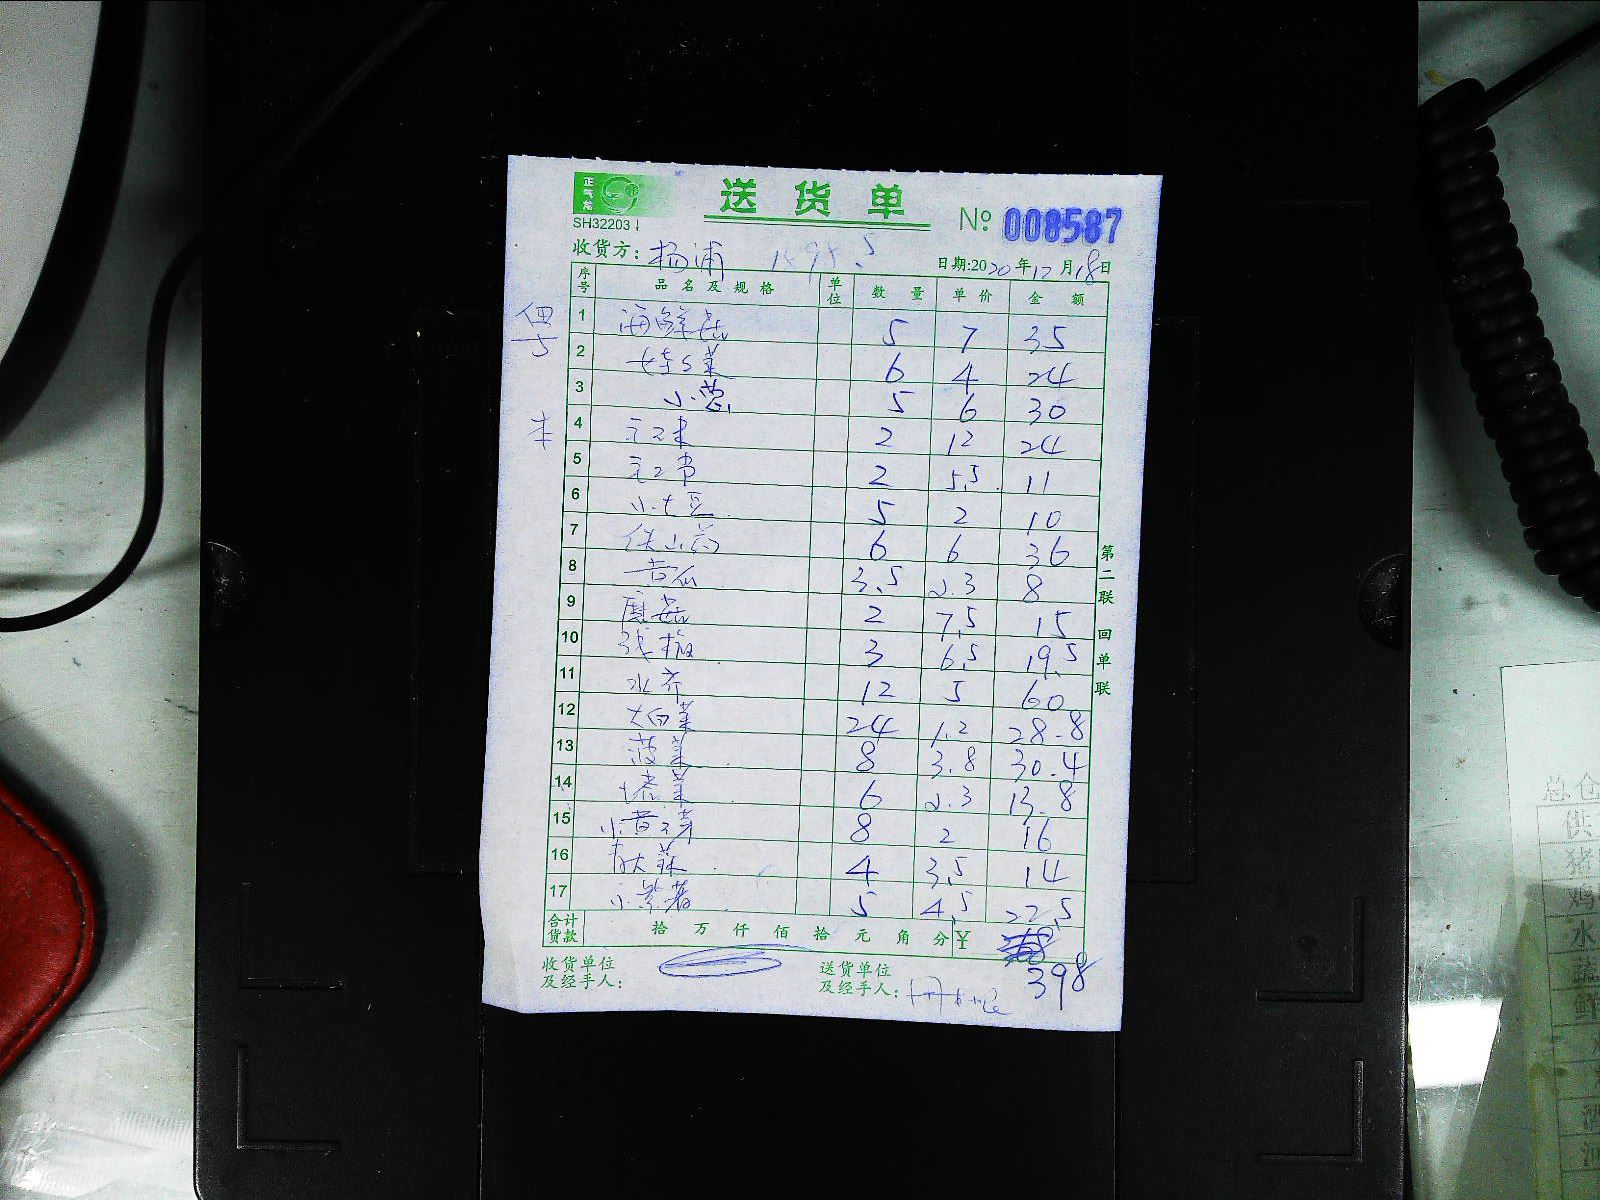 正气龙
送货单
№ 008587
SH32203
收货方: 杨浦
日期:2020年12月18日
序号 品名及规格 单位 数量 单价 金额
1 海鲜菇 5 7 35
2 6 4 24
3 小葱 5 6 30
4 2 12 24
5 2 5.5 11
6 小土豆 5 2 10
7 铁山药 6 6 36
8 苦瓜 3.5 2.3 8
9 蘑菇 2 7.5 15
10 3 6.5 19.5
11 水芹 12 5 60
12 大白菜 24 1.2 28.8
13 菠菜 8 3.8 30.4
14 塔菜 6 2.3 13.8
15 8 2 16
16 4 3.5 14
17 小紫薯 5 4.5 22.5
合计货款 拾 万 仟 佰 拾 元 角 分 ¥
398
收货单位及经手人:
送货单位及经手人:
第二联 回单联
总仓
供
猪
鸡
水
鲜